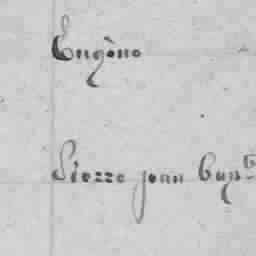 Eugène
Pierre jean Bapt